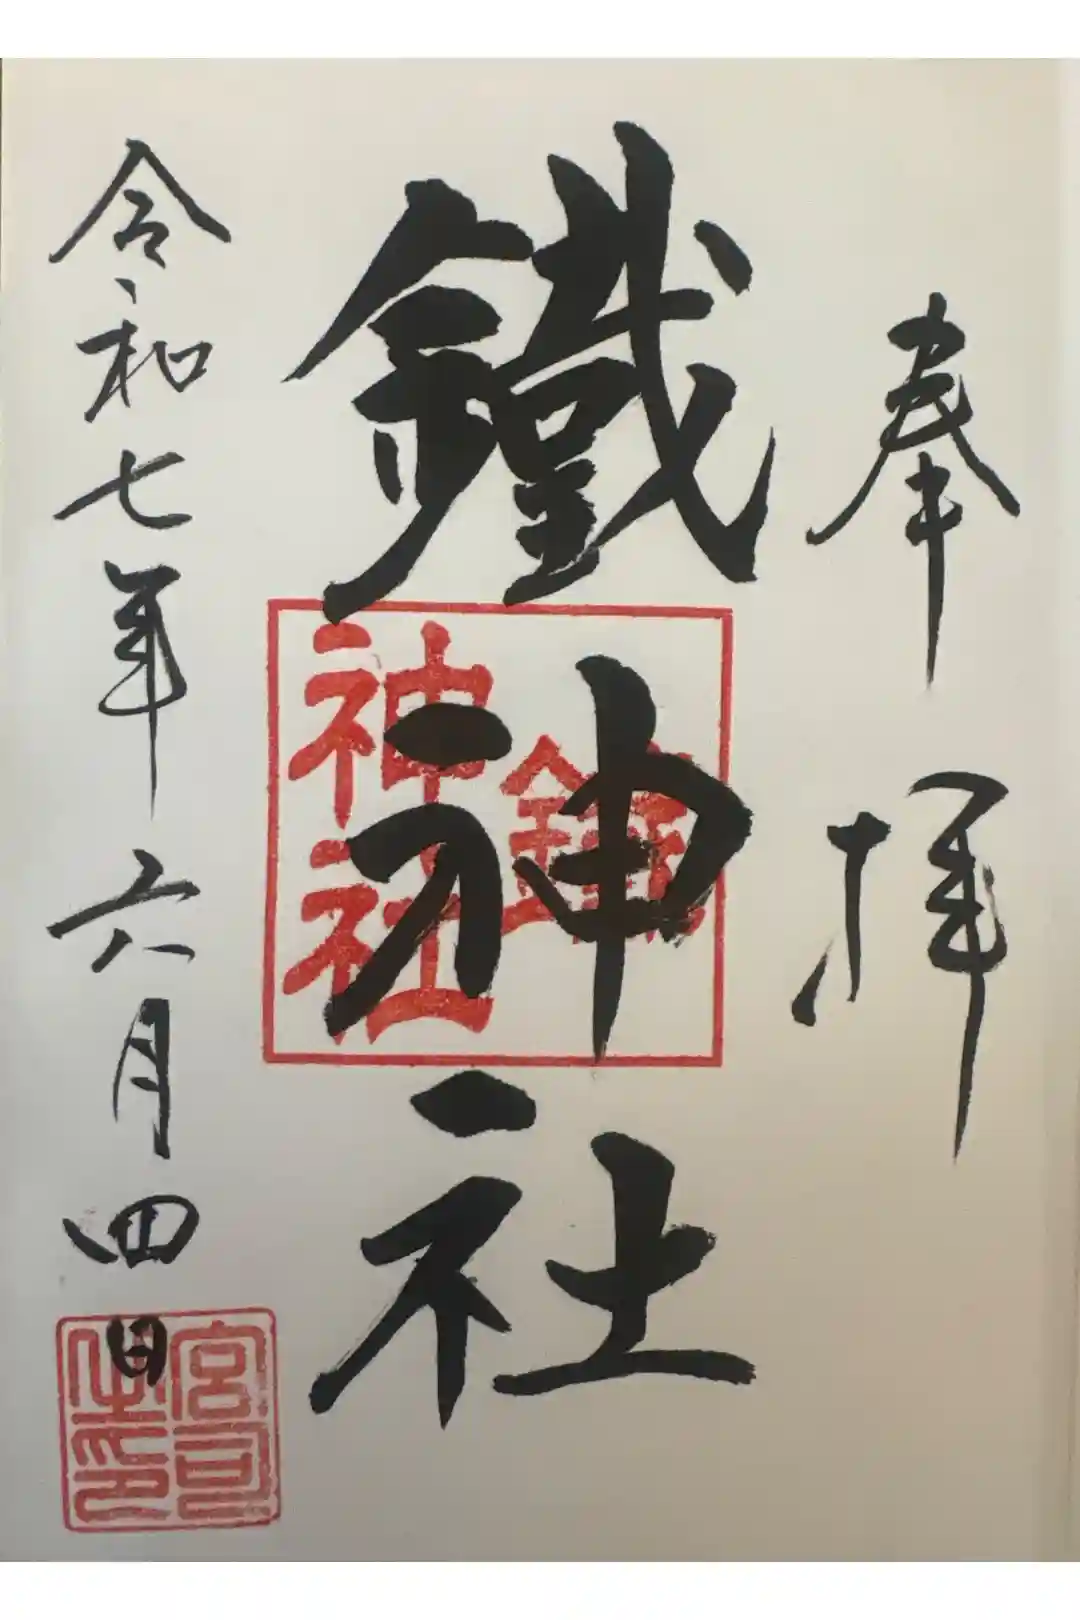 奉拝
鐵神社
鐵
神社
令和七年六月四日
宮司
之印